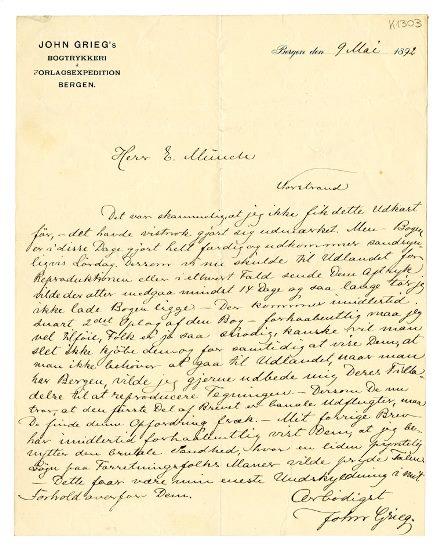 K1303
JOHN GRIEG's
BOGTRYKKERI
&
FORLAGSEXPEDITION
BERGEN.
Bergen den 9 Mai 1892
Herr E. Munch
Det var skammeligt at jeg ikke fik dette Udkast
før, – det havde vistnok gjort sig udmærket. Men Bogen
er i disse Dage gjort helt færdig og udkommer sandsyn-
ligvis Lørdag. Dersom vi nu skulde til Udlandet for
Reproduktionen eller i ethvert Fald sende Dem Aftryk
vilde der atter medgaa mindst 14 Dage og saa længe tør jeg
ikke lade Bogen ligge – Der kommer imidlertid
snart 2det Oplag af den Bog – forhaabentlig maa jeg
vel tilføie, Folk er jo saa
slet ikke kjøbe den og for samtidig at vise Dem, at
man ikke behøver at gaa til Udlandet, naar man
har Bergen, vilde jeg gjerne udbede mig Deres Tilla-
delse til at reproducere Tegningen – Dersom De nu
tror, at den første Del af Brevet er banale Udflugter, maa
De finde denne Opfordring fræk. – Mit forrige Brev
har imidlertid forhaabentlig vist Dem, at jeg be-
nytter den brutale Sandhed, hvor en liden
Løgn paa Forretningsfolks Maner vilde pryde
– Dette faar være min eneste Undskyldning i mit
Forhold overfor Dem.
Ærbødigst
John Grieg.